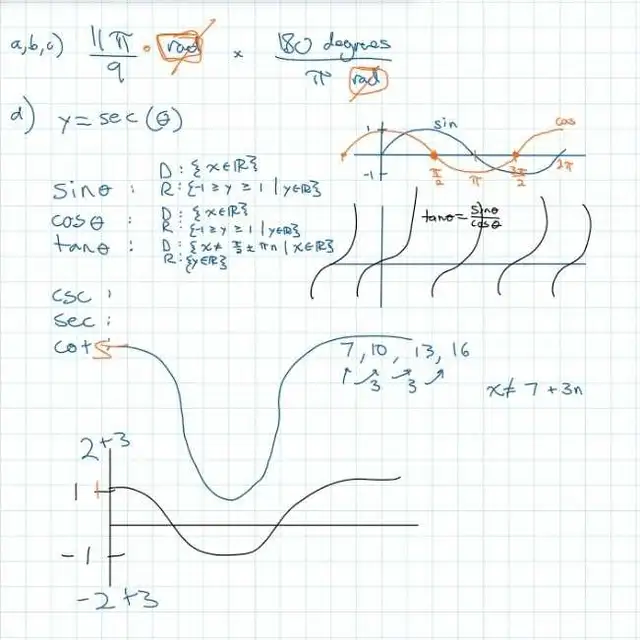 a,b,c) 11π/9 · rad × 180 degrees/π rad
d) y = sec(θ)
sin cos
1
-1
π/2 π 3π/2 2π
sinθ : D: {x∈ℝ}
R: {-1 ≥ y ≥ 1 | y∈ℝ}
cosθ : D: {x∈ℝ}
R: {-1 ≥ y ≥ 1 | y∈ℝ}
tanθ : D: {x ≠ π/2 ± πn | x∈ℝ}
R: {y∈ℝ}
tanθ = sinθ/cosθ
csc :
sec :
cot :
5
7, 10, 13, 16
3 3
x ≠ 7 + 3n
2+3
1
-1
-2+3